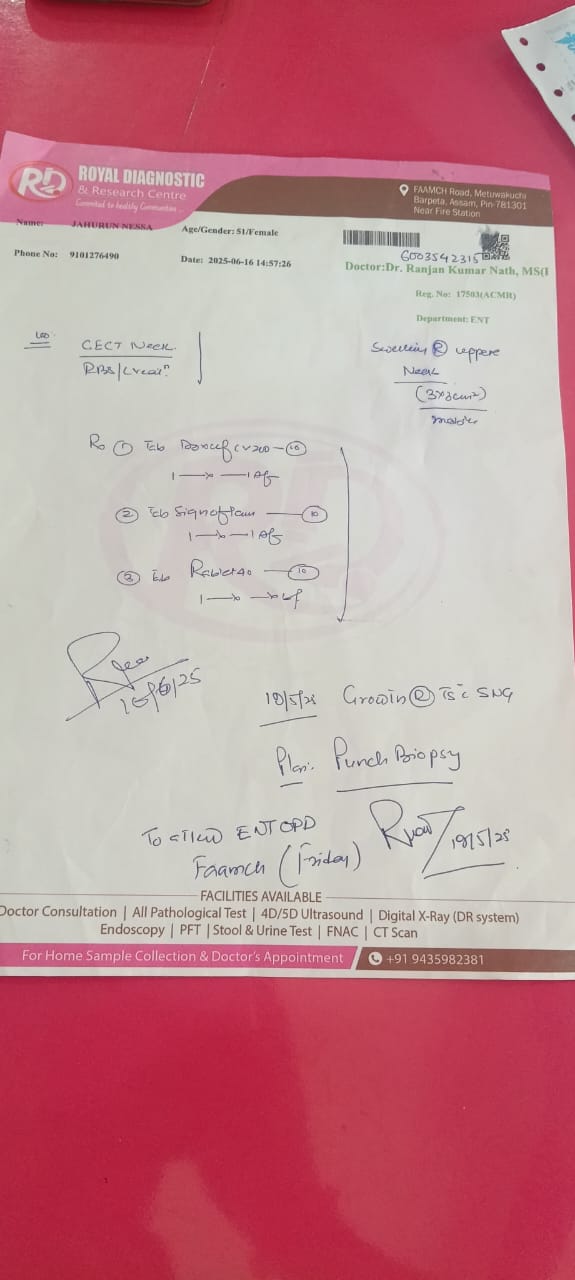 RD
ROYAL DIAGNOSTIC
& Research Centre
Committed to healthy Communities ...
FAAMCH Road, Metuwakuchi
Barpeta, Assam, Pin-781301
Near Fire Station
Name: JAHURUN NESSA
Age/Gender: 51/Female
6003542315
Phone No: 9101276490
Date: 2025-06-16 14:57:26
Doctor:Dr. Ranjan Kumar Nath, MS(E
Reg. No: 17503(ACMR)
Department: ENT
CECT Neck
RBS/Creatn
Swelling R uppere
Neck
mobile
① Tab CV200 - 10
1 → x — 1 Af
② Tab Signoflam — 10
1 → x — 1 Af
③ Tab — 10
1 → x → x
25
Growth R SNG
Plan: Punch Biopsy
To attend ENT OPD
Faamch (Friday)
FACILITIES AVAILABLE
Doctor Consultation | All Pathological Test | 4D/5D Ultrasound | Digital X-Ray (DR system)
Endoscopy | PFT | Stool & Urine Test | FNAC | CT Scan
For Home Sample Collection & Doctor's Appointment
+91 9435982381